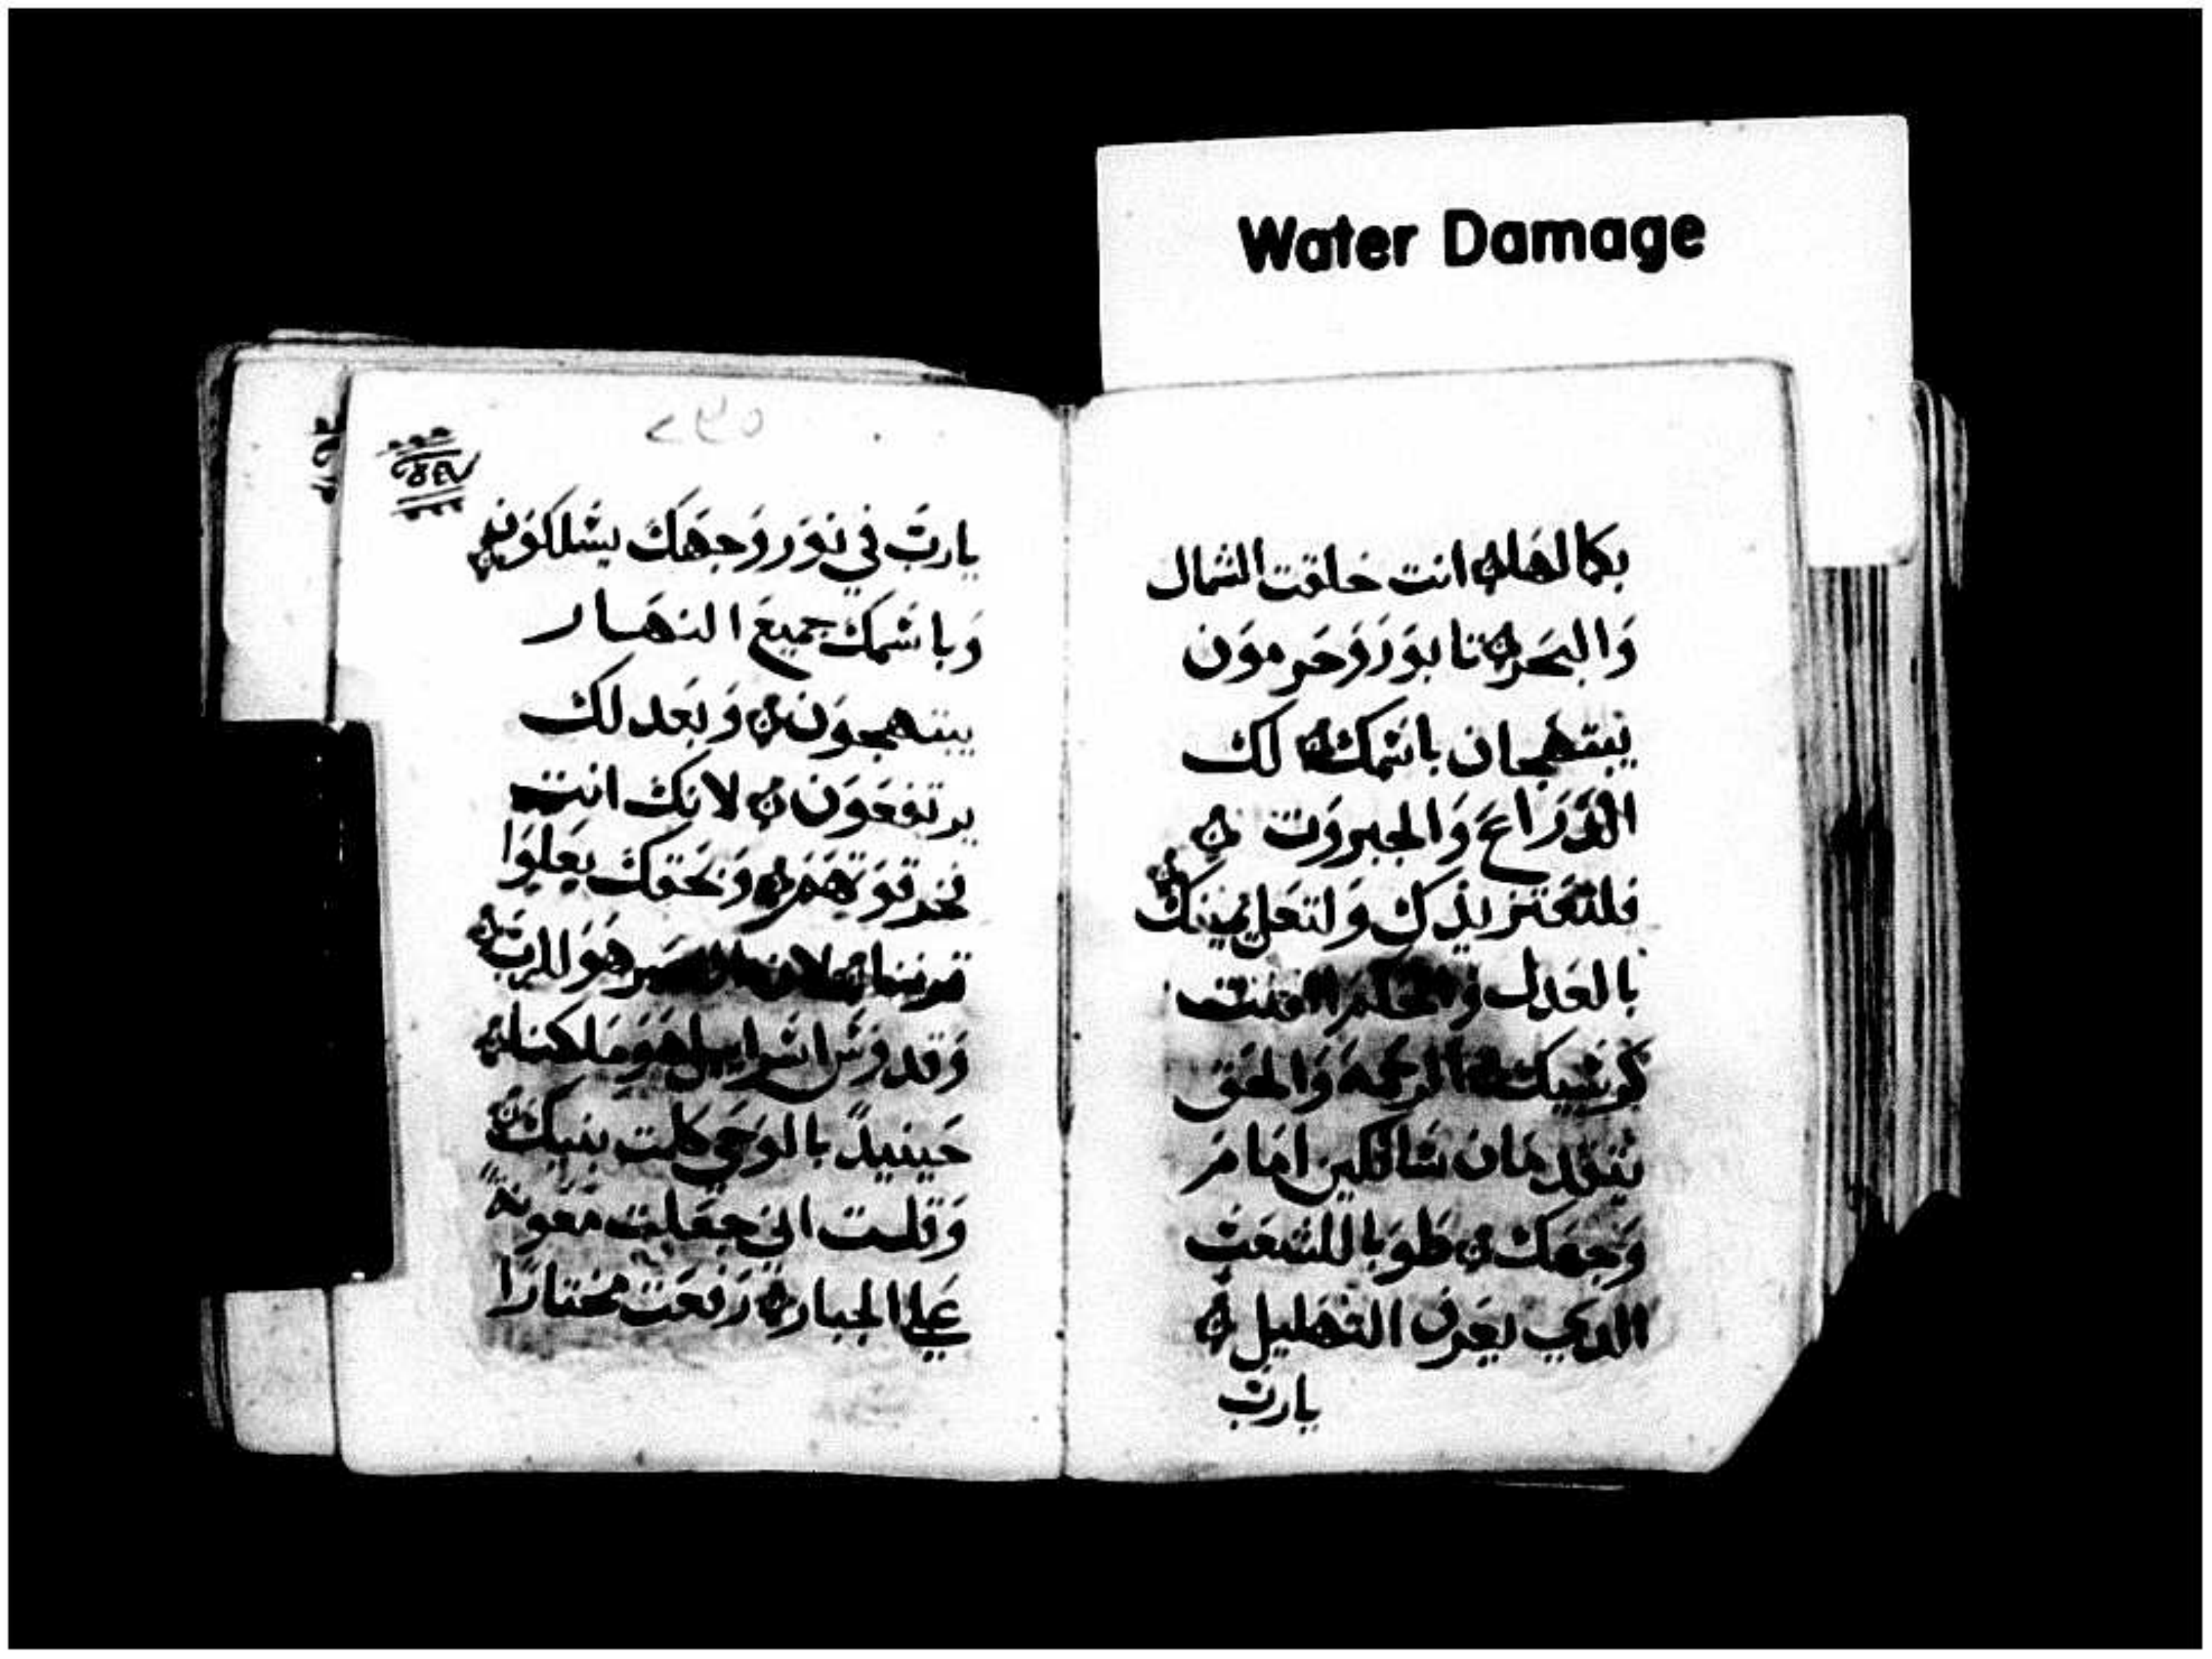 Water Damage
بكمالها انت خلقت الشمال
وَالبَحر تابوَر وَحَرموَن
يبتهجان باسمك لك
الدِرَاعَ وَالجبروَت
فلتعتز يدك وَلتعل يمينك
بالعَدل وَالحكم اتقنت
كرسيك الرحمَة وَالحَق
يتقدمان سالكين امَامَ
وَجهَك طوَبا للشعَب
الدي يعَرف التهَليل
يارب
٢٣٥
يارَبّ في نوَر وَجهَك يسَلكوَن
وَباسَمك جميعَ النهَار
يبتهجوَن وَبعَدلك
يرتفعَوَن لانك انت
فخر قوَتهَم وَبحَقك يعَلوَا
قرننا لان هوَ الرب
وَقدوَسَ اسَراييل هوَ مَلكنا
حَينيدً بالوَحَي كلمت بنيك
وَقلت اني جعَلت معَوَنة
عَلي الجبار رَفعَت مختارًا